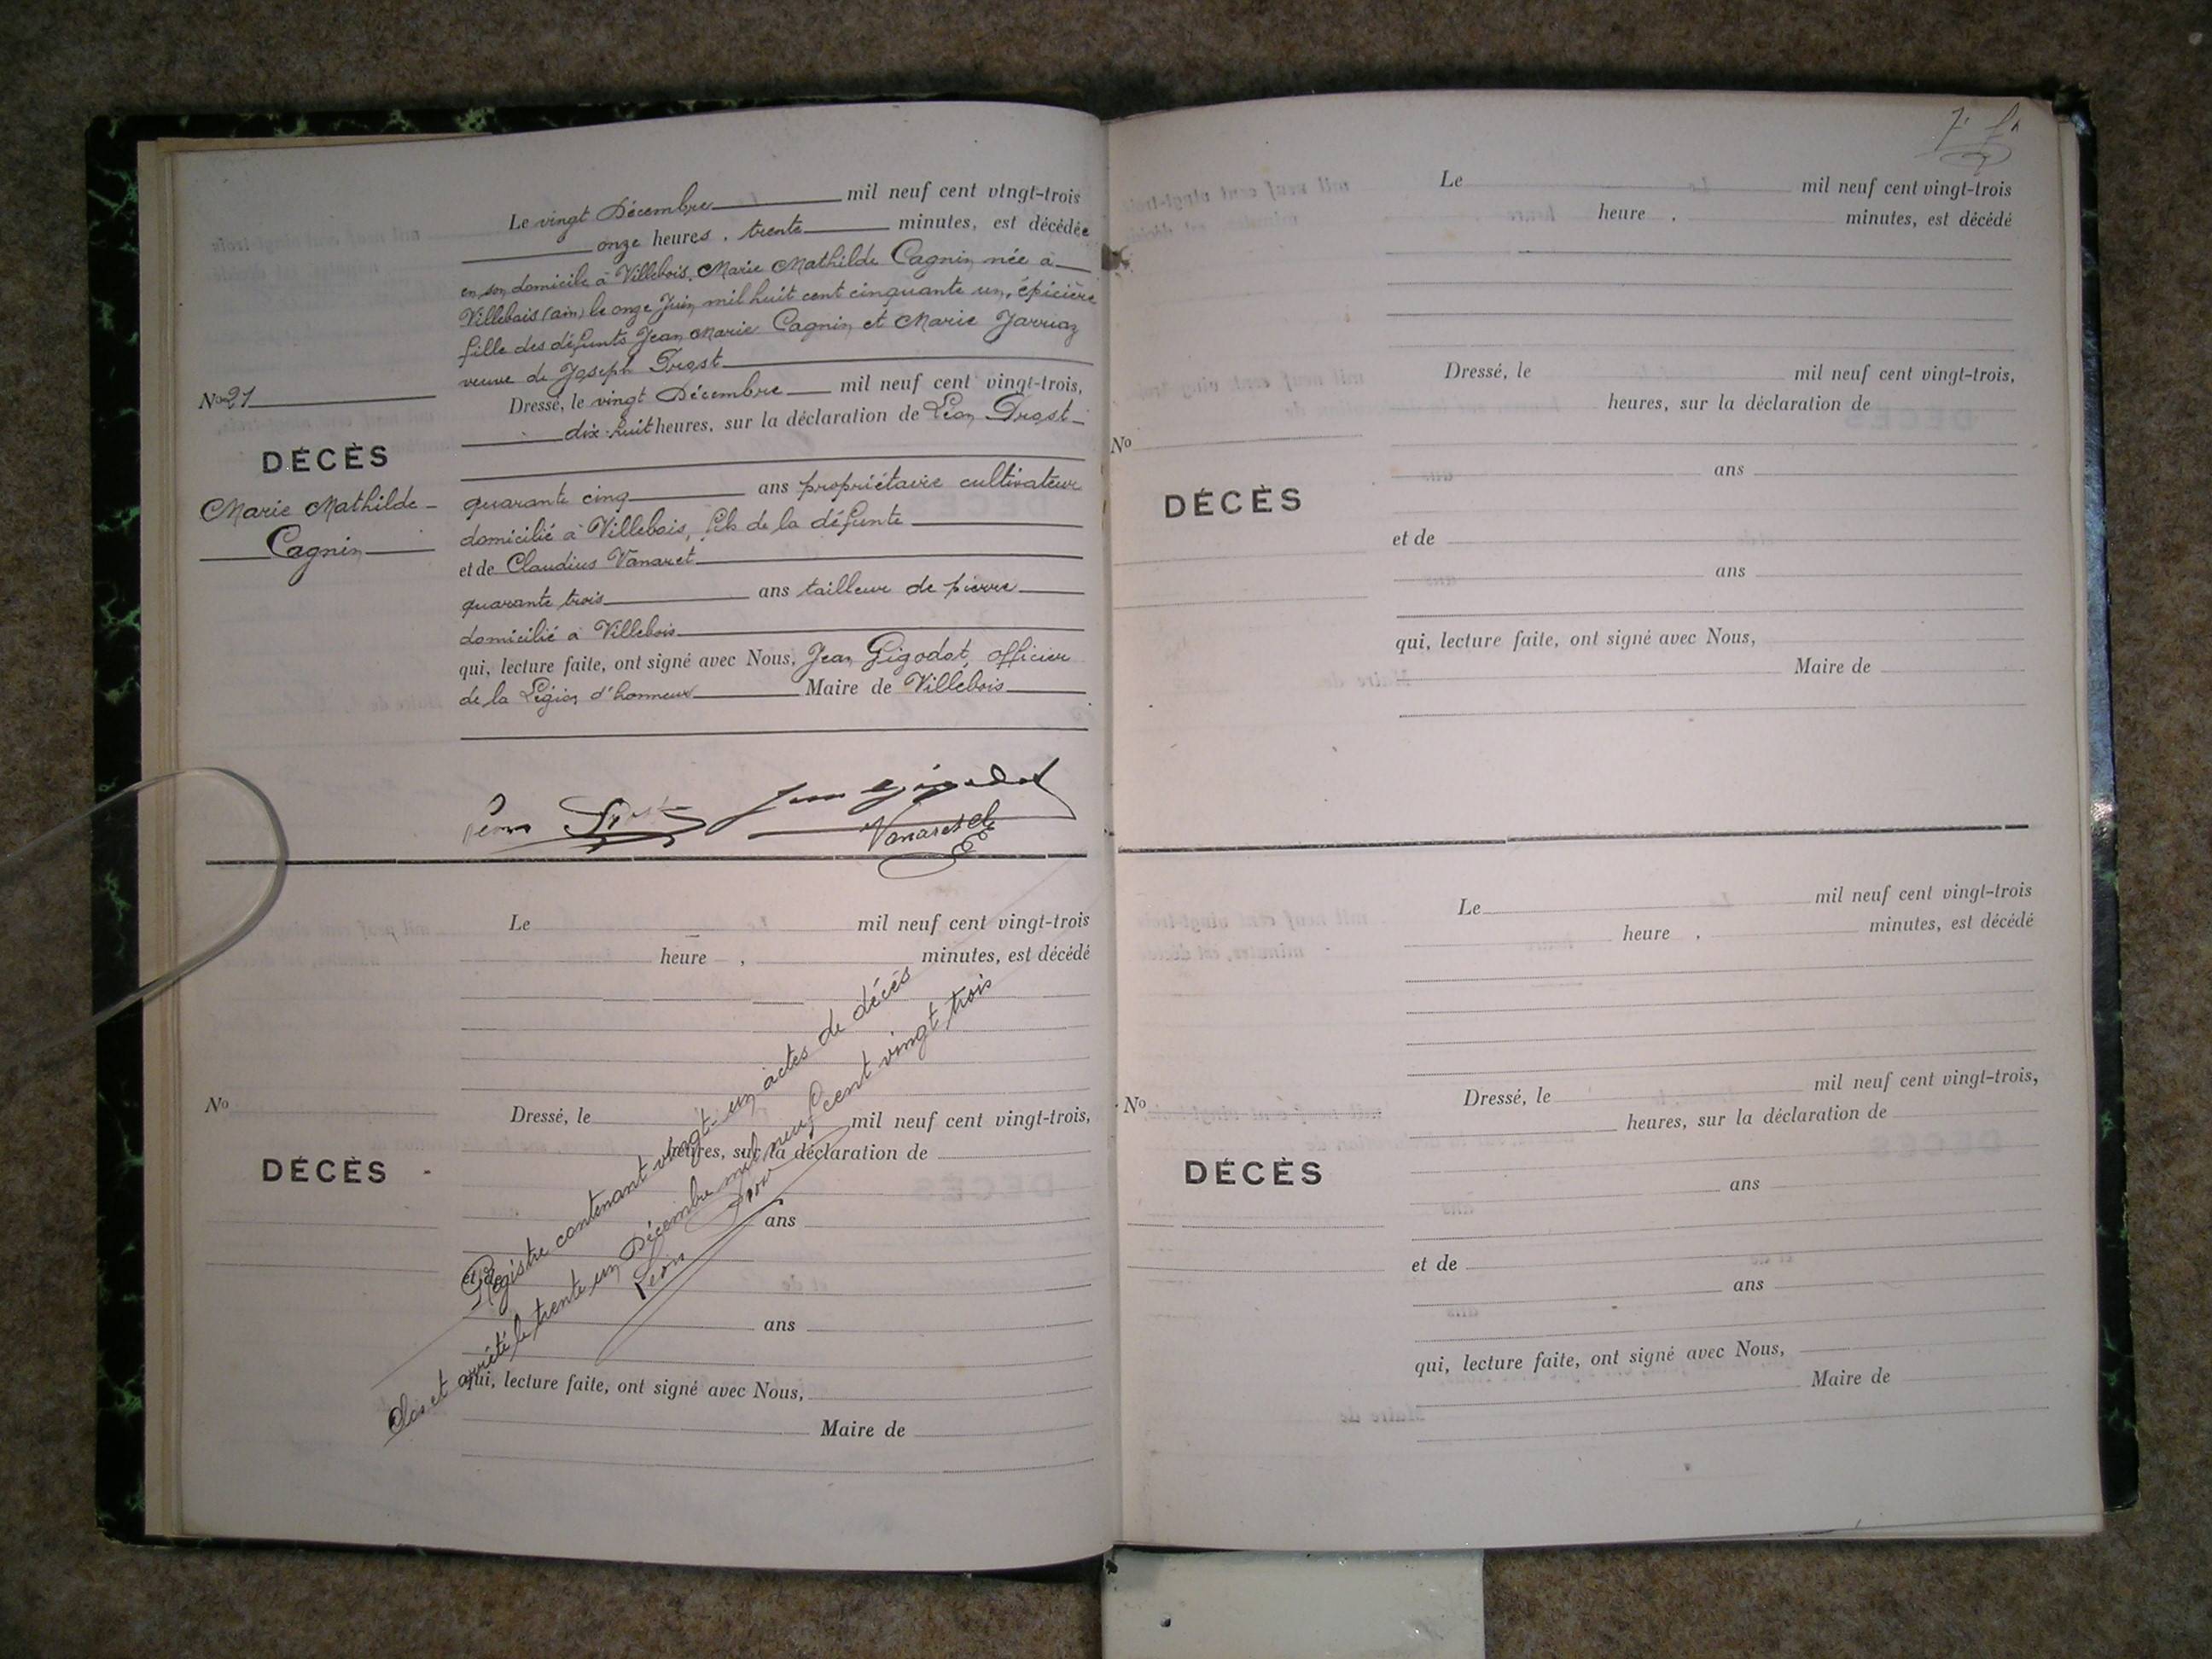 Le vingt Décembre mil neuf cent vingt-trois
onze heures, trente minutes, est décédée
en son domicile à Villebois, Marie Mathilde Cagnin née à
Villebois (ain) le onze Juin mil huit cent cinquante un, épicière
fille des défunts Jean Marie Cagnin et Marie Jarruaz
veuve de Joseph Trost
No 21
Dressé, le vingt Décembre mil neuf cent vingt-trois,
dix-huit heures, sur la déclaration de Léon Trost
DÉCÈS
Marie Mathilde
Cagnin
quarante cinq ans propriétaire cultivateur
domicilié à Villebois, fils de la défunte
et de Claudius Vanaret
quarante trois ans tailleur de pierre
domicilié à Villebois
qui, lecture faite, ont signé avec Nous, Jean Gigodot, officier
de la Légion d'honneur Maire de Villebois
Léon Trost Jean Gigodot
Vanaret
Le mil neuf cent vingt-trois
heure , minutes, est décédé
No
Dressé, le mil neuf cent vingt-trois,
heures, sur la déclaration de
DÉCÈS
ans
et de
ans
qui, lecture faite, ont signé avec Nous,
Maire de
Registre contenant vingt-un actes de décès
Clos et arrêté le trente un Décembre mil neuf cent vingt trois
Le mil neuf cent vingt-trois
heure , minutes, est décédé
Dressé, le mil neuf cent vingt-trois,
heures, sur la déclaration de
No
DÉCÈS
ans
et de
ans
qui, lecture faite, ont signé avec Nous,
Maire de
Le mil neuf cent vingt-trois
heure , minutes, est décédé
No
Dressé, le mil neuf cent vingt-trois,
heures, sur la déclaration de
DÉCÈS
ans
et de
ans
qui, lecture faite, ont signé avec Nous,
Maire de